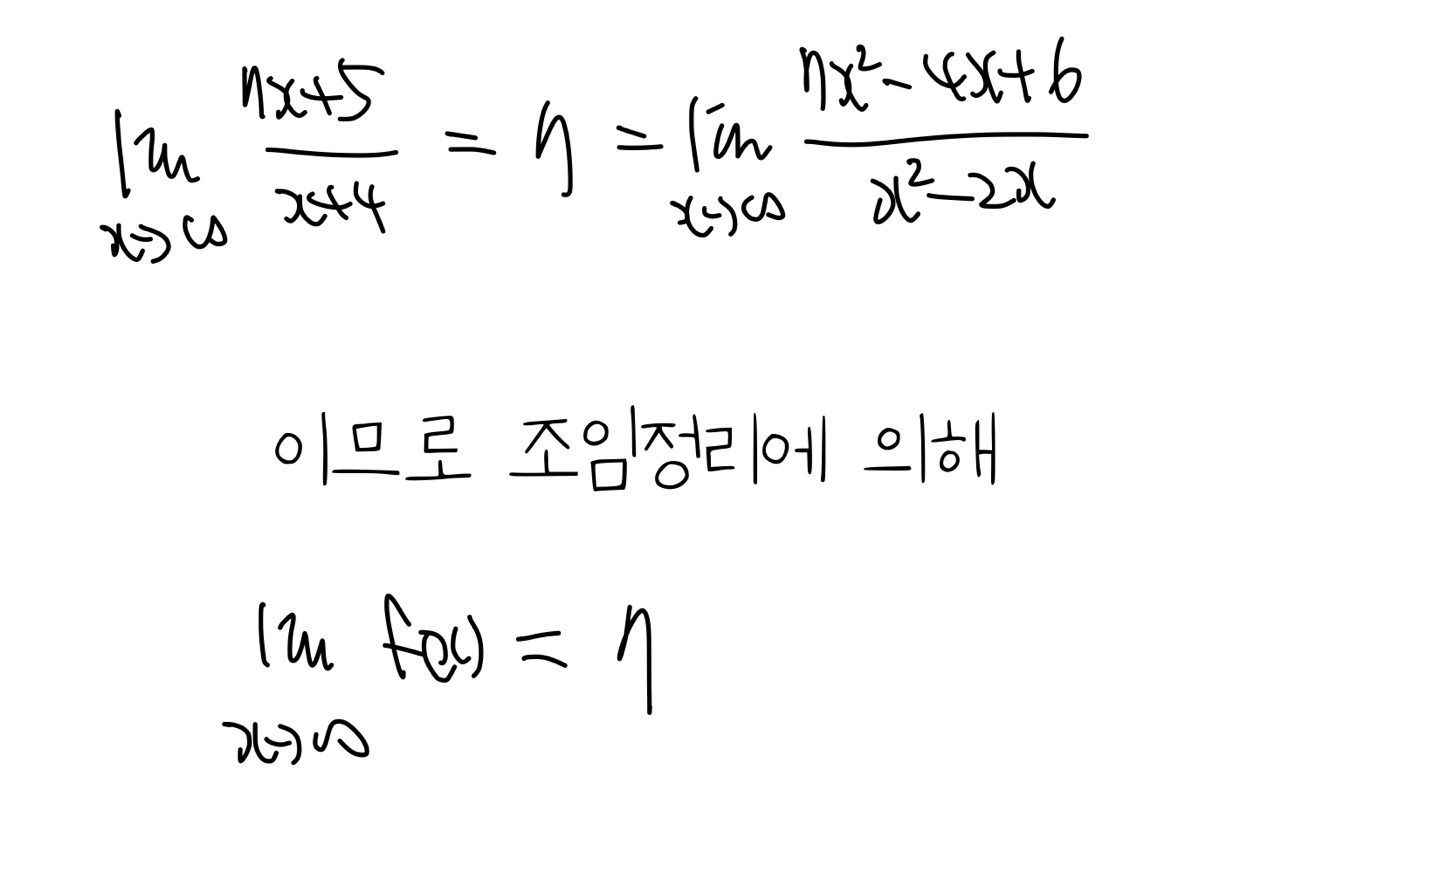 lim x→∞ (ηx+5)/(x+4) = η = lim x→∞ (ηx²-4x+6)/(x²-2x)
이므로 조임정리에 의해
lim x→∞ f(x) = η